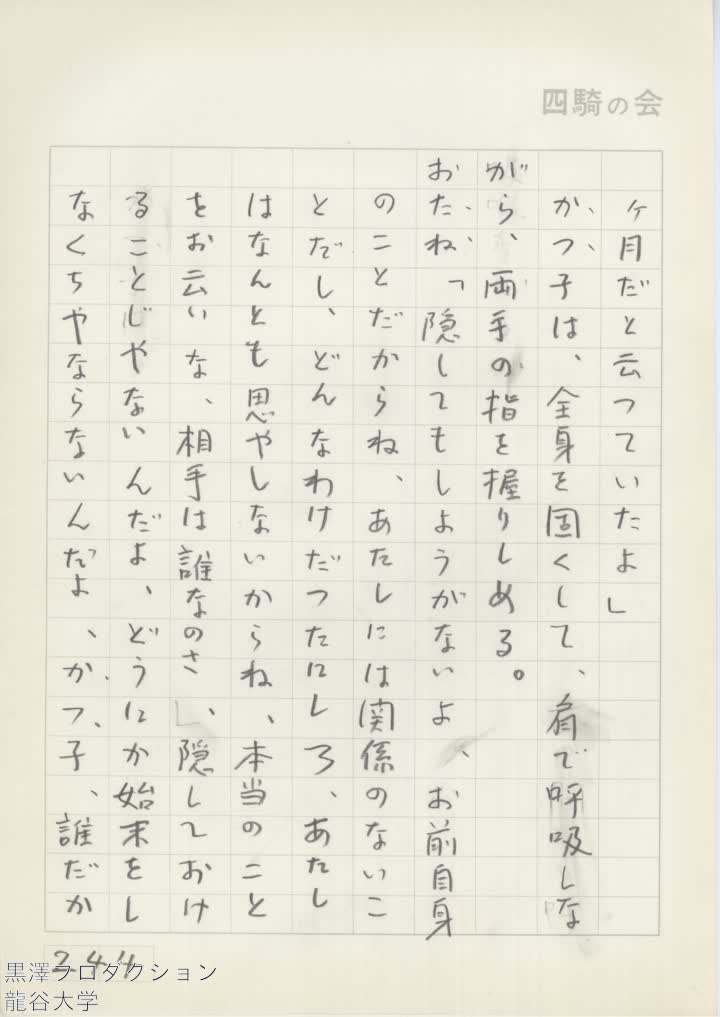 四騎の会
ヶ月だと云つていたよ」
かつ子は、全身を固くして、肩で呼吸しな
がら、両手の指を握りしめる。
おたね「隠してもしようがないよ、お前自身
のことだからね、あたしには関係のないこ
とだし、どんなわけだつたにしろ、あたし
はなんとも思やしないからね、本当のこと
をお云いな、相手は誰なのさ、隠しておけ
ることじやないんだよ、どうにか始末をし
なくちやならないんだよ、かつ子、誰だか
244
黒澤プロダクション
龍谷大学